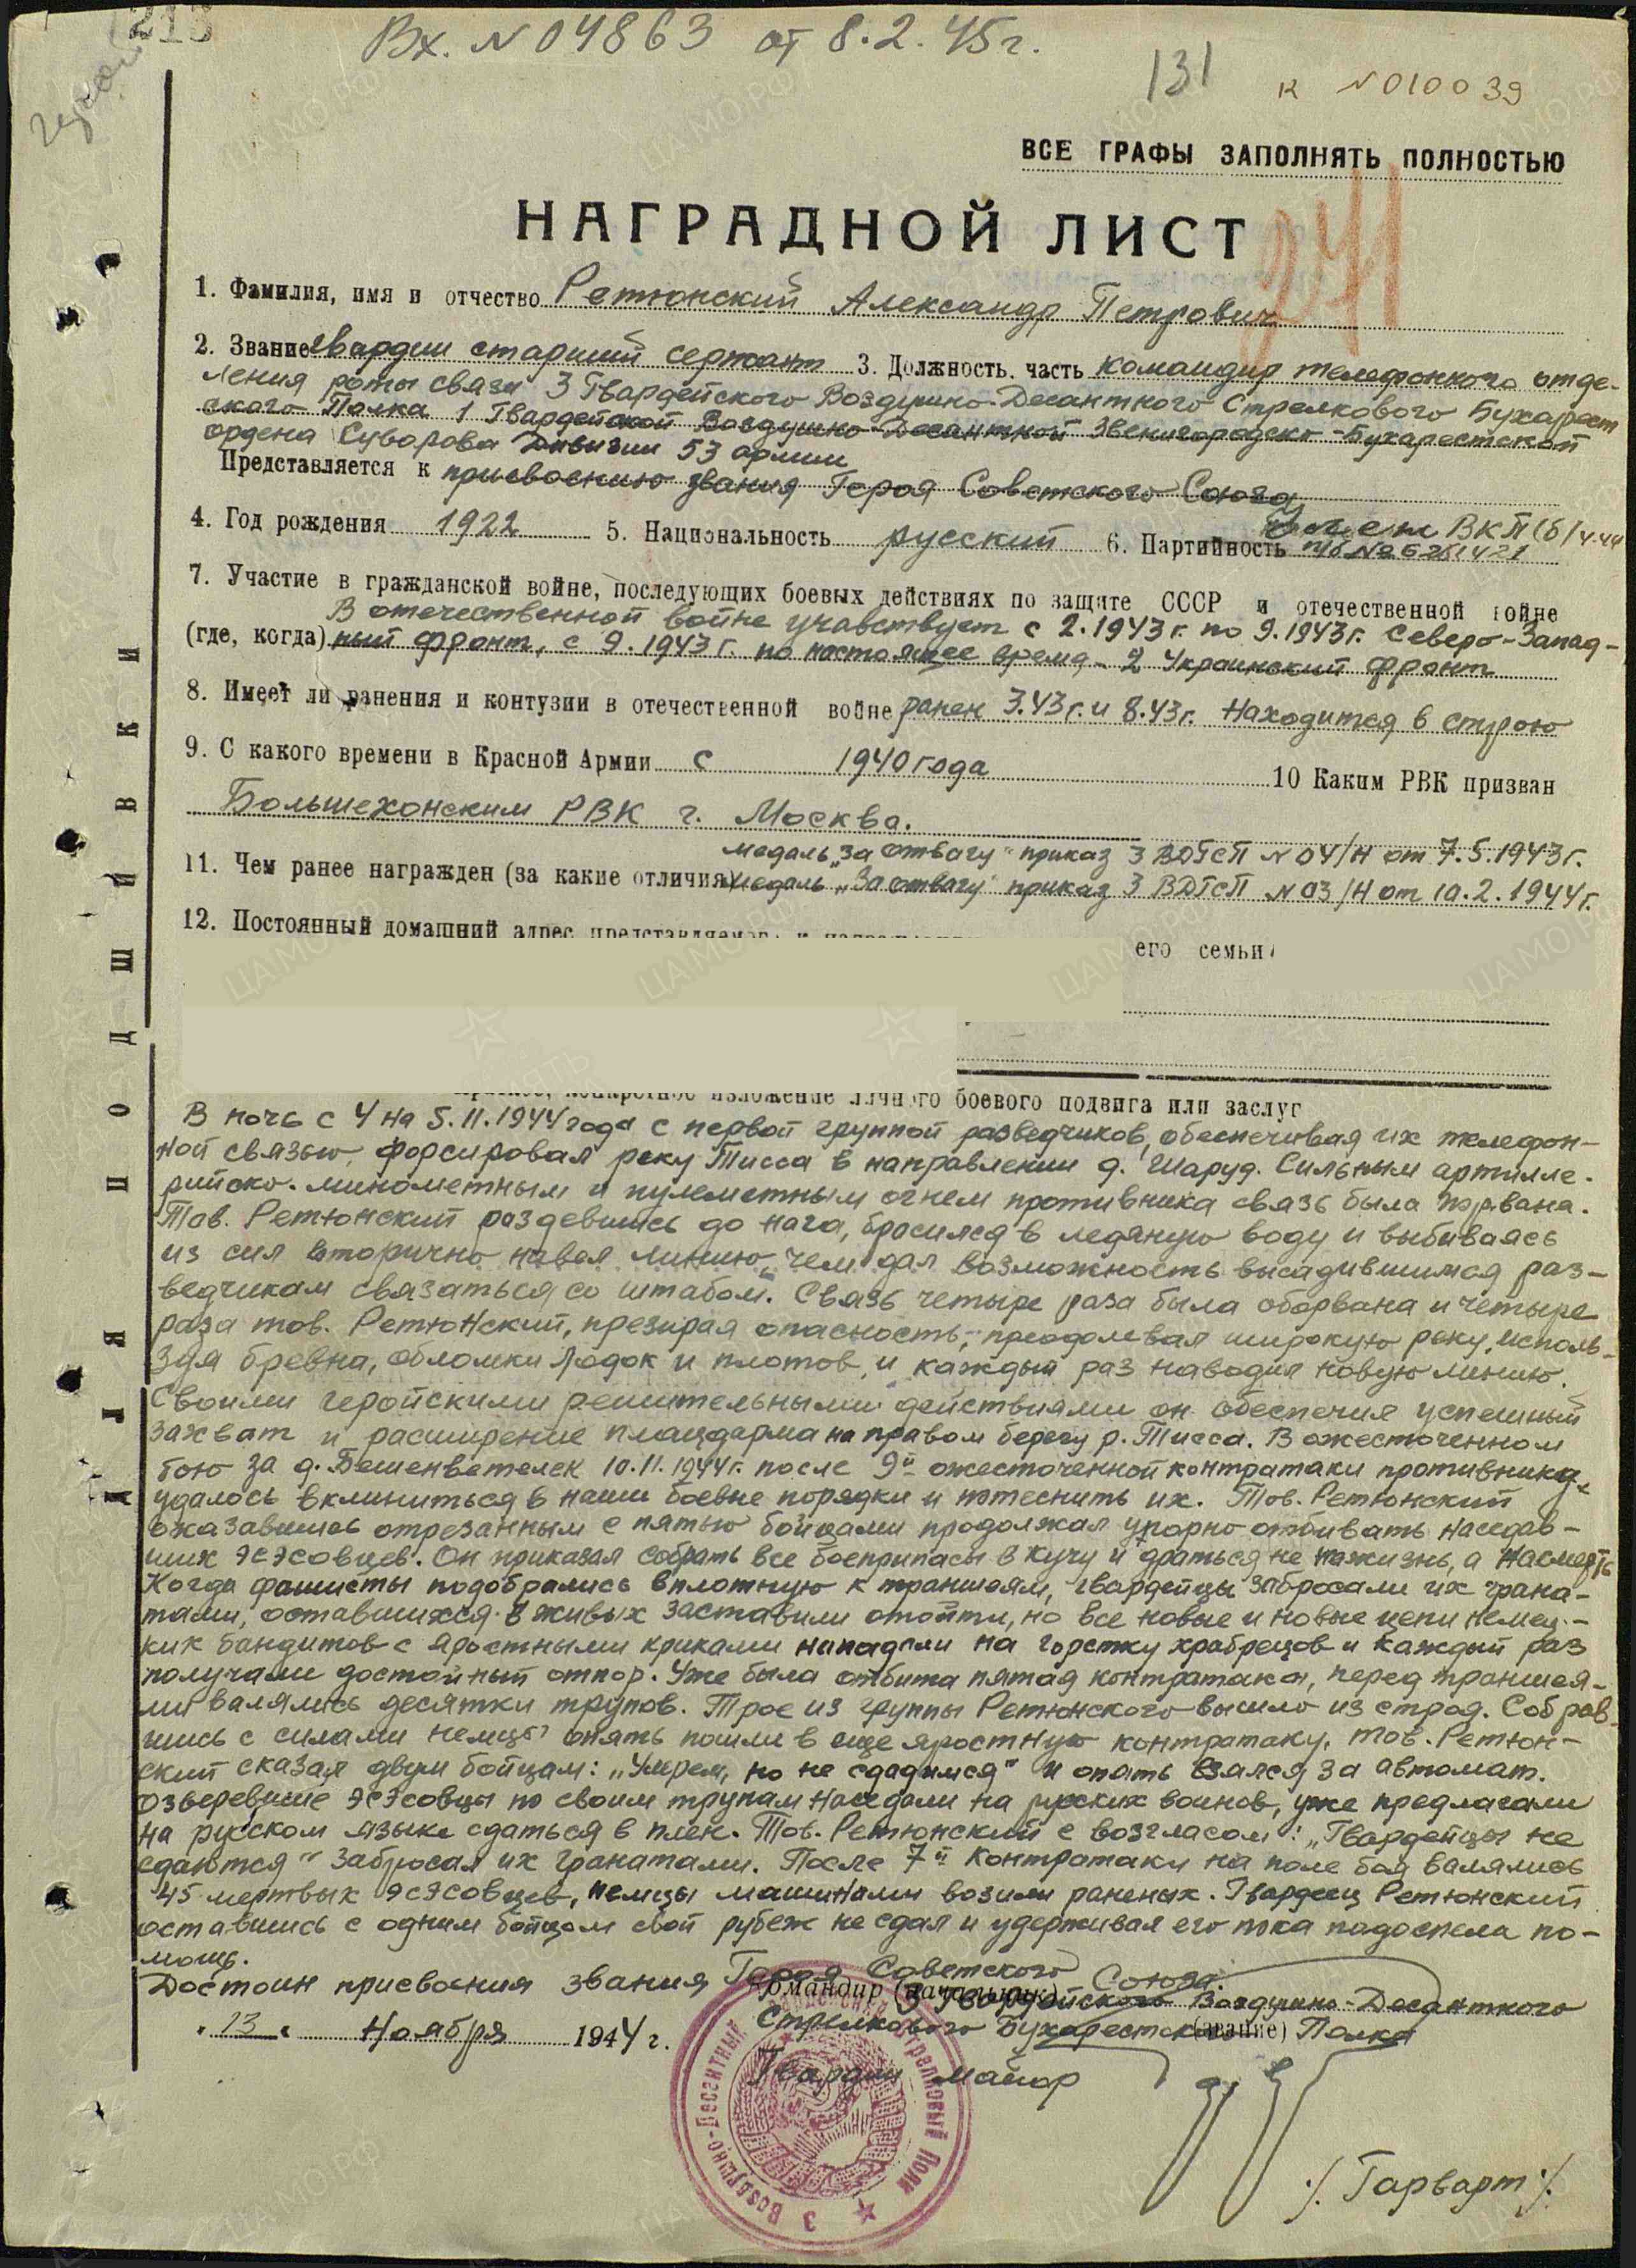 213
Вх. N 04863 от 8.2.45г.
131
к N010039
ВСЕ ГРАФЫ ЗАПОЛНЯТЬ ПОЛНОСТЬЮ
НАГРАДНОЙ ЛИСТ
241
1. Фамилия, имя и отчество Ретюнский Александр Петрович
2. Звание гвардии старший сержант 3. Должность, часть командир телефонного отде-
ления роты связи 3 Гвардейского Воздушно-Десантного Стрелкового Бухарест
ского Полка 1 Гвардейской Воздушно-Десантной Звенигородско-Бухарестской
ордена Суворова Дивизии 53 армии
Представляется к присвоению звания Героя Советского Союза
4. Год рождения 1922 5. Национальность русский 6. Партийность член ВКП(б)
п/б №6261421
7. Участие в гражданской войне, последующих боевых действиях по защите СССР и отечественной войне
В отечественной войне учавствует с 2.1943г. по 9.1943г. Северо-Запад-
(где, когда) ный фронт, с 9.1943г. по настоящее время - 2 Украинский фронт
8. Имеет ли ранения и контузии в отечественной войне ранен 3.43г. и 8.43г. Находится в строю
9. С какого времени в Красной Армии с 1940 года
10 Каким РВК призван
Большехонским РВК г. Москва.
медаль „За отвагу" приказ 3 ВДГСП N 04/Н от 7.5.1943г.
11. Чем ранее награжден (за какие отличия) медаль „За отвагу" приказ 3 ВДГСП N 03/Н от 10.2.1944г.
12. Постоянный домашний адрес представляемого к его семьи
изложение личного боевого подвига или заслуг
В ночь с 4 на 5.11.1944 года с первой группой разведчиков, обеспечивая их телефон-
ной связью, форсировал реку Тисса в направлении д. Шаруд. Сильным артилле-
рийско-минометным и пулеметным огнем противника связь была порвана.
Тов. Ретюнский раздевшись до нага, бросился в ледяную воду и выбиваясь
из сил вторично навел линию, чем дал возможность высадившимся раз-
ведчикам связаться со штабом. Связь четыре раза была оборвана и четыре
раза тов. Ретюнский, презирая опасность, преодолевал широкую реку, исполь-
зуя бревна, обломки лодок и плотов, и каждый раз наводил новую линию.
Своими геройскими решительными действиями он обеспечил успешный
захват и расширение плацдарма на правом берегу р. Тисса. В ожесточенном
бою за д. Бешенветелек 10.11.1944г. после 9й ожесточенной контратаки противнику
удалось вклиниться в наши боевые порядки и потеснить их. Тов. Ретюнский
оказавшись отрезанным с пятью бойцами продолжал упорно отбивать наседав-
ших эсэсовцев. Он приказал собрать все боеприпасы в кучу и драться не на жизнь, а насмерть
Когда фашисты подобрались вплотную к траншеям, гвардейцы забросали их грана-
тами, оставшихся в живых заставили отойти, но все новые и новые цепи немец-
ких бандитов с яростными криками нападали на горстку храбрецов и каждый раз
получали достойный отпор. Уже была отбита пятая контратака, перед траншея-
ми валялись десятки трупов. Трое из группы Ретюнского вышло из строя. Собрав-
шись с силами немцы опять пошли в еще яростную контратаку. Тов. Ретюн-
ский сказал двум бойцам: „Умрем, но не сдадимся" и опять взялся за автомат.
Озверевшие эсэсовцы по своим трупам наседали на русских воинов, уже предлагали
на русском языке сдаться в плен. Тов. Ретюнский с возгласом: „Гвардейцы не
сдаются" забросал их гранатами. После 7й контратаки на поле боя валялись
45 мертвых эсэсовцев, немцы машинами возили раненых. Гвардеец Ретюнский
оставшись с одним бойцом свой рубеж не сдал и удерживал его пока подоспела по-
мощь.
Достоин присвоения звания Героя Советского Союза.
Командир (начальник)
3 Гвардейского Воздушно-Десантного
Стрелкового Бухарестского (звание) Полка
„13" Ноября 1944 г.
Гвардии майор
/Гарварт/
3 Воздушно-Десантный Стрелковый Полк
ДЛЯ ПОДШИВКИ